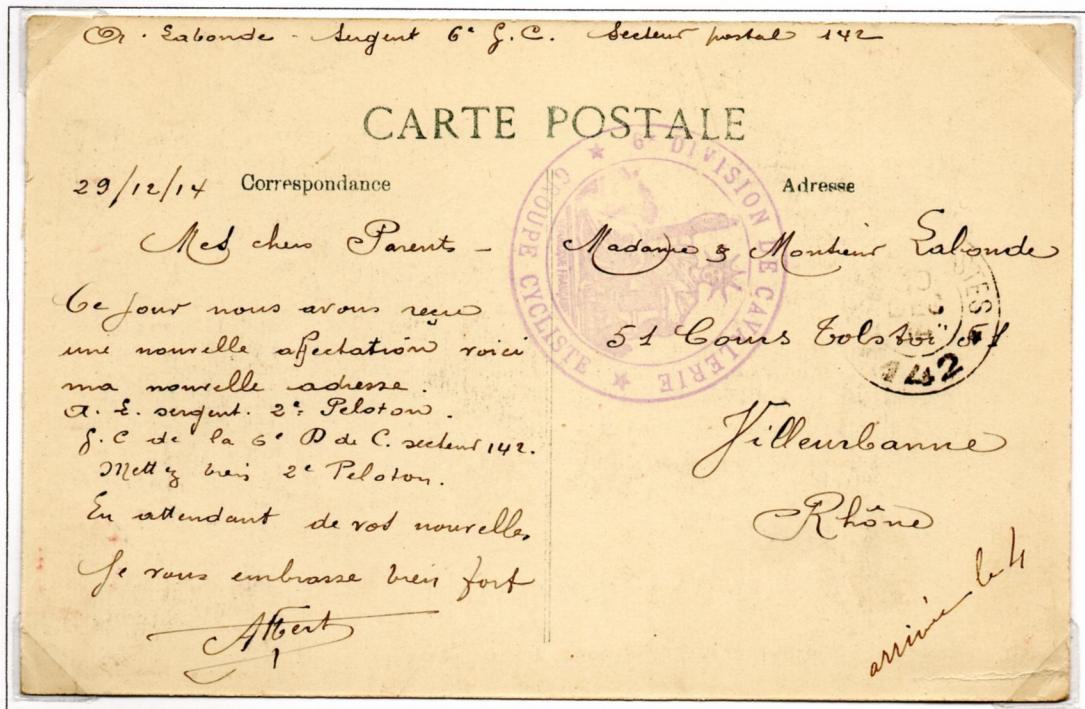 A. Labonde - Sergent 6e G.C. Secteur postal 142
CARTE POSTALE
29/12/14 Correspondance
Mes chers Parents -
Ce jour nous avons reçu
une nouvelle affectation voici
ma nouvelle adresse.
A. L. sergent. 2e Peloton.
G. C de la 6e D de C. secteur 142.
Mettez bien 2e Peloton.
En attendant de vos nouvelles
Je vous embrasse bien fort
Albert
6e DIVISION DE CAVALERIE
GROUPE CYCLISTE
Adresse
Madame & Monsieur Labonde
51 Cours Tolstoï 51
Villeurbanne
Rhône
142
arrivée le 4